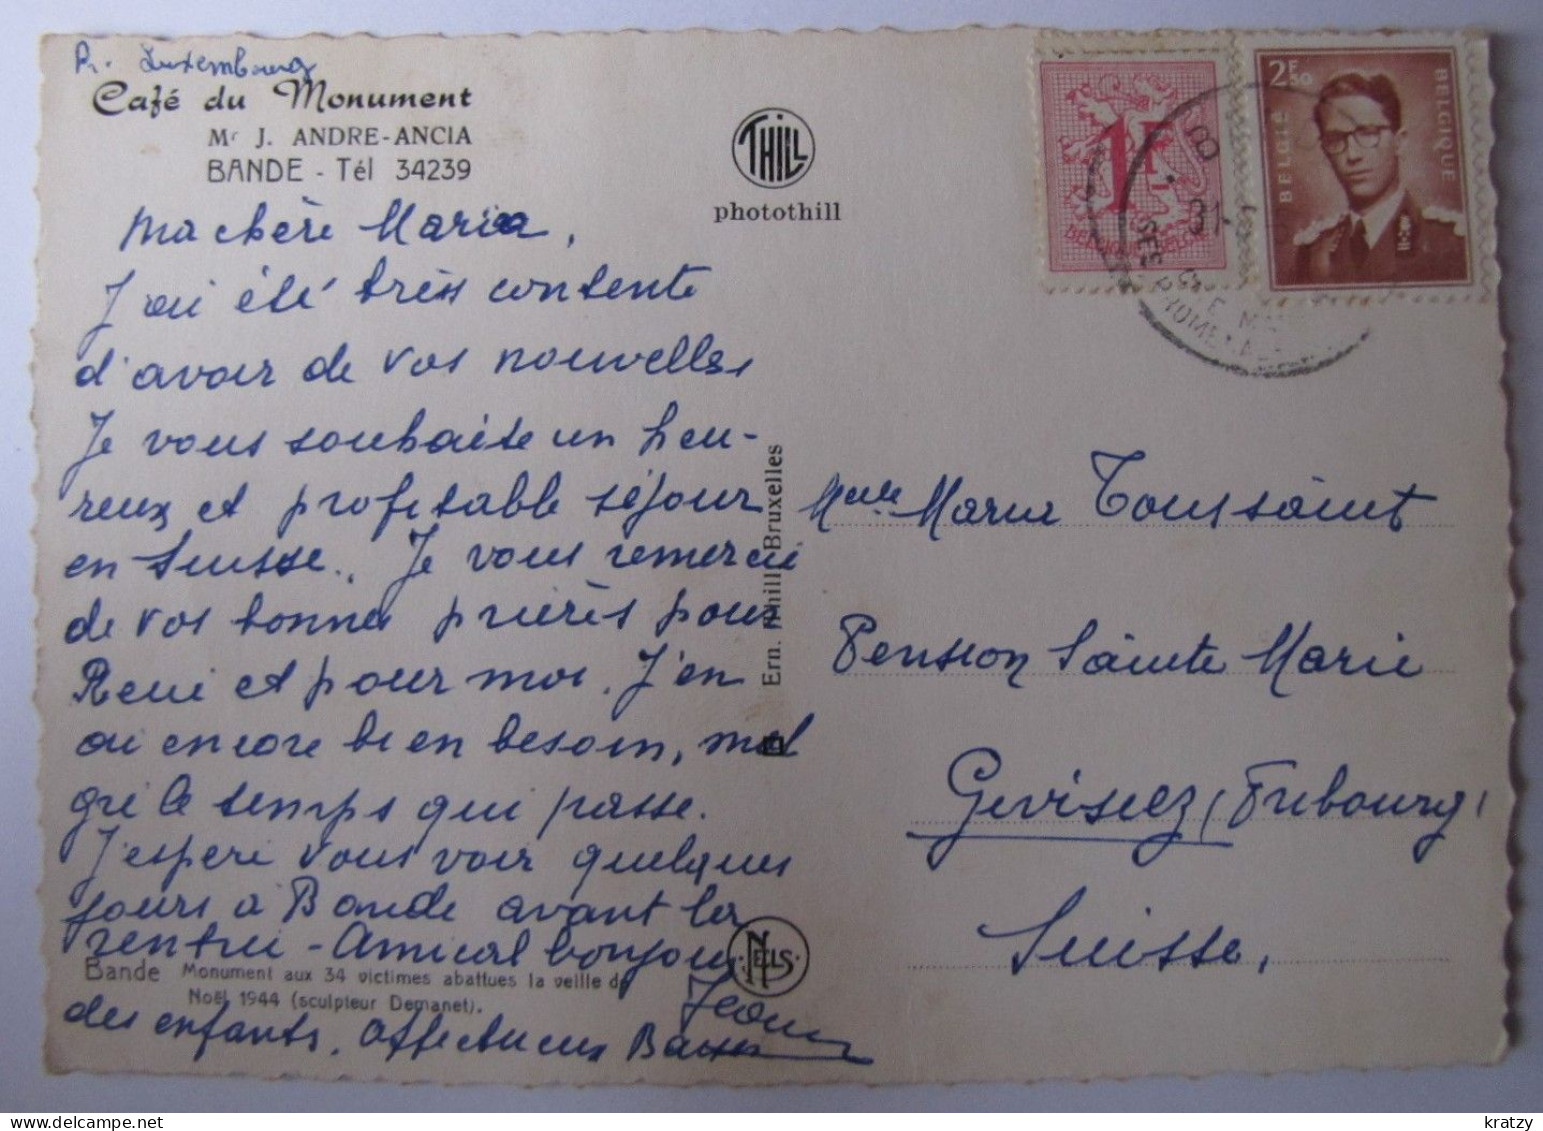 Pr. Luxembourg
Café du Monument
Mr J. ANDRE-ANCIA
BANDE - Tél 34239
Ma chère Maria,
J'ai été très contente
d'avoir de vos nouvelles
Je vous souhaite un heu-
reux et profitable séjour
en Suisse. Je vous remercie
de vos bonnes prières pour
René et pour moi. J'en
ai encore bien besoin, mal
gré le temps qui passe.
J'espère vous voir quelques
jours à Bande avant la
rentrée - Amical bonjour
des enfants. Affectueux Baisers
Bande Monument aux 34 victimes abattues la veille de
Noël 1944 (sculpteur Demanet).
THILL
photothill
Ern. Thill, Bruxelles
NELS
1F
BELGIQUE BELGIE
2F50
BELGIE
BELGIQUE
8
31
SES PROMENADES
Melle Maria Toussaint
Pension Sainte Marie
Gevisiez (Fribourg)
Suisse.
kratzy